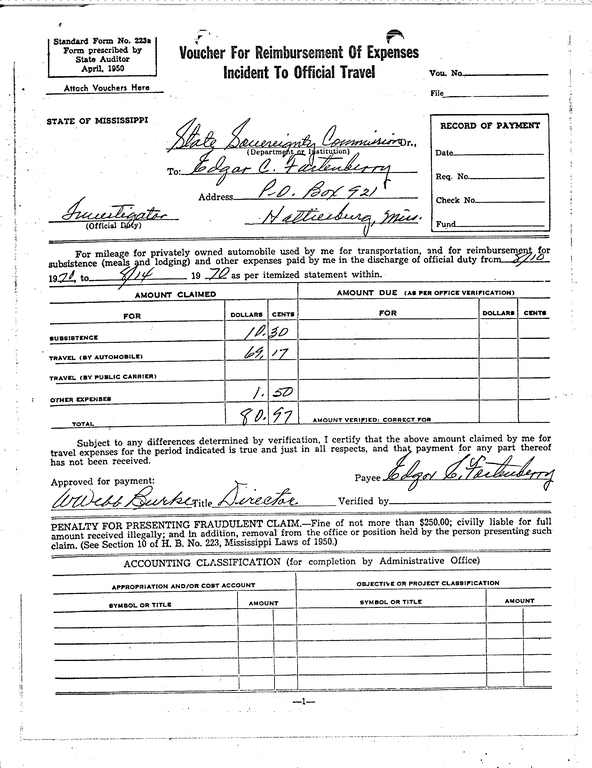 Standard Form No. 223a
Form prescribed by
State Auditor
April, 1950
Attach Vouchers Here
Voucher For Reimbursement Of Expenses
Incident To Official Travel
Vou. No.
File
STATE OF MISSISSIPPI
State Sovereignty Commission Dr.,
(Department or Institution)
To: Edgar C. Fortenberry
Address P.O. Box 921
Investigator Hattiesburg, Miss.
(Official Duty)
RECORD OF PAYMENT
Date
Req. No.
Check No.
Fund
For mileage for privately owned automobile used by me for transportation, and for reimbursement for
subsistence (meals and lodging) and other expenses paid by me in the discharge of official duty from 8/10
1970, to 8/14 1970 as per itemized statement within.
AMOUNT CLAIMED AMOUNT DUE (AS PER OFFICE VERIFICATION)
FOR DOLLARS CENTS FOR DOLLARS CENTS
SUBSISTENCE 10.30
TRAVEL (BY AUTOMOBILE) 69.17
TRAVEL (BY PUBLIC CARRIER)
OTHER EXPENSES 1.50
TOTAL 80.97 AMOUNT VERIFIED: CORRECT FOR
Subject to any differences determined by verification, I certify that the above amount claimed by me for
travel expenses for the period indicated is true and just in all respects, and that payment for any part thereof
has not been received.
Approved for payment: Payee Edgar C. Fortenberry
W Webb Burke Title Director Verified by
PENALTY FOR PRESENTING FRAUDULENT CLAIM.—Fine of not more than $250.00; civilly liable for full
amount received illegally; and in addition, removal from the office or position held by the person presenting such
claim. (See Section 10 of H. B. No. 223, Mississippi Laws of 1950.)
ACCOUNTING CLASSIFICATION (for completion by Administrative Office)
APPROPRIATION AND/OR COST ACCOUNT OBJECTIVE OR PROJECT CLASSIFICATION
SYMBOL OR TITLE AMOUNT SYMBOL OR TITLE AMOUNT
—1—